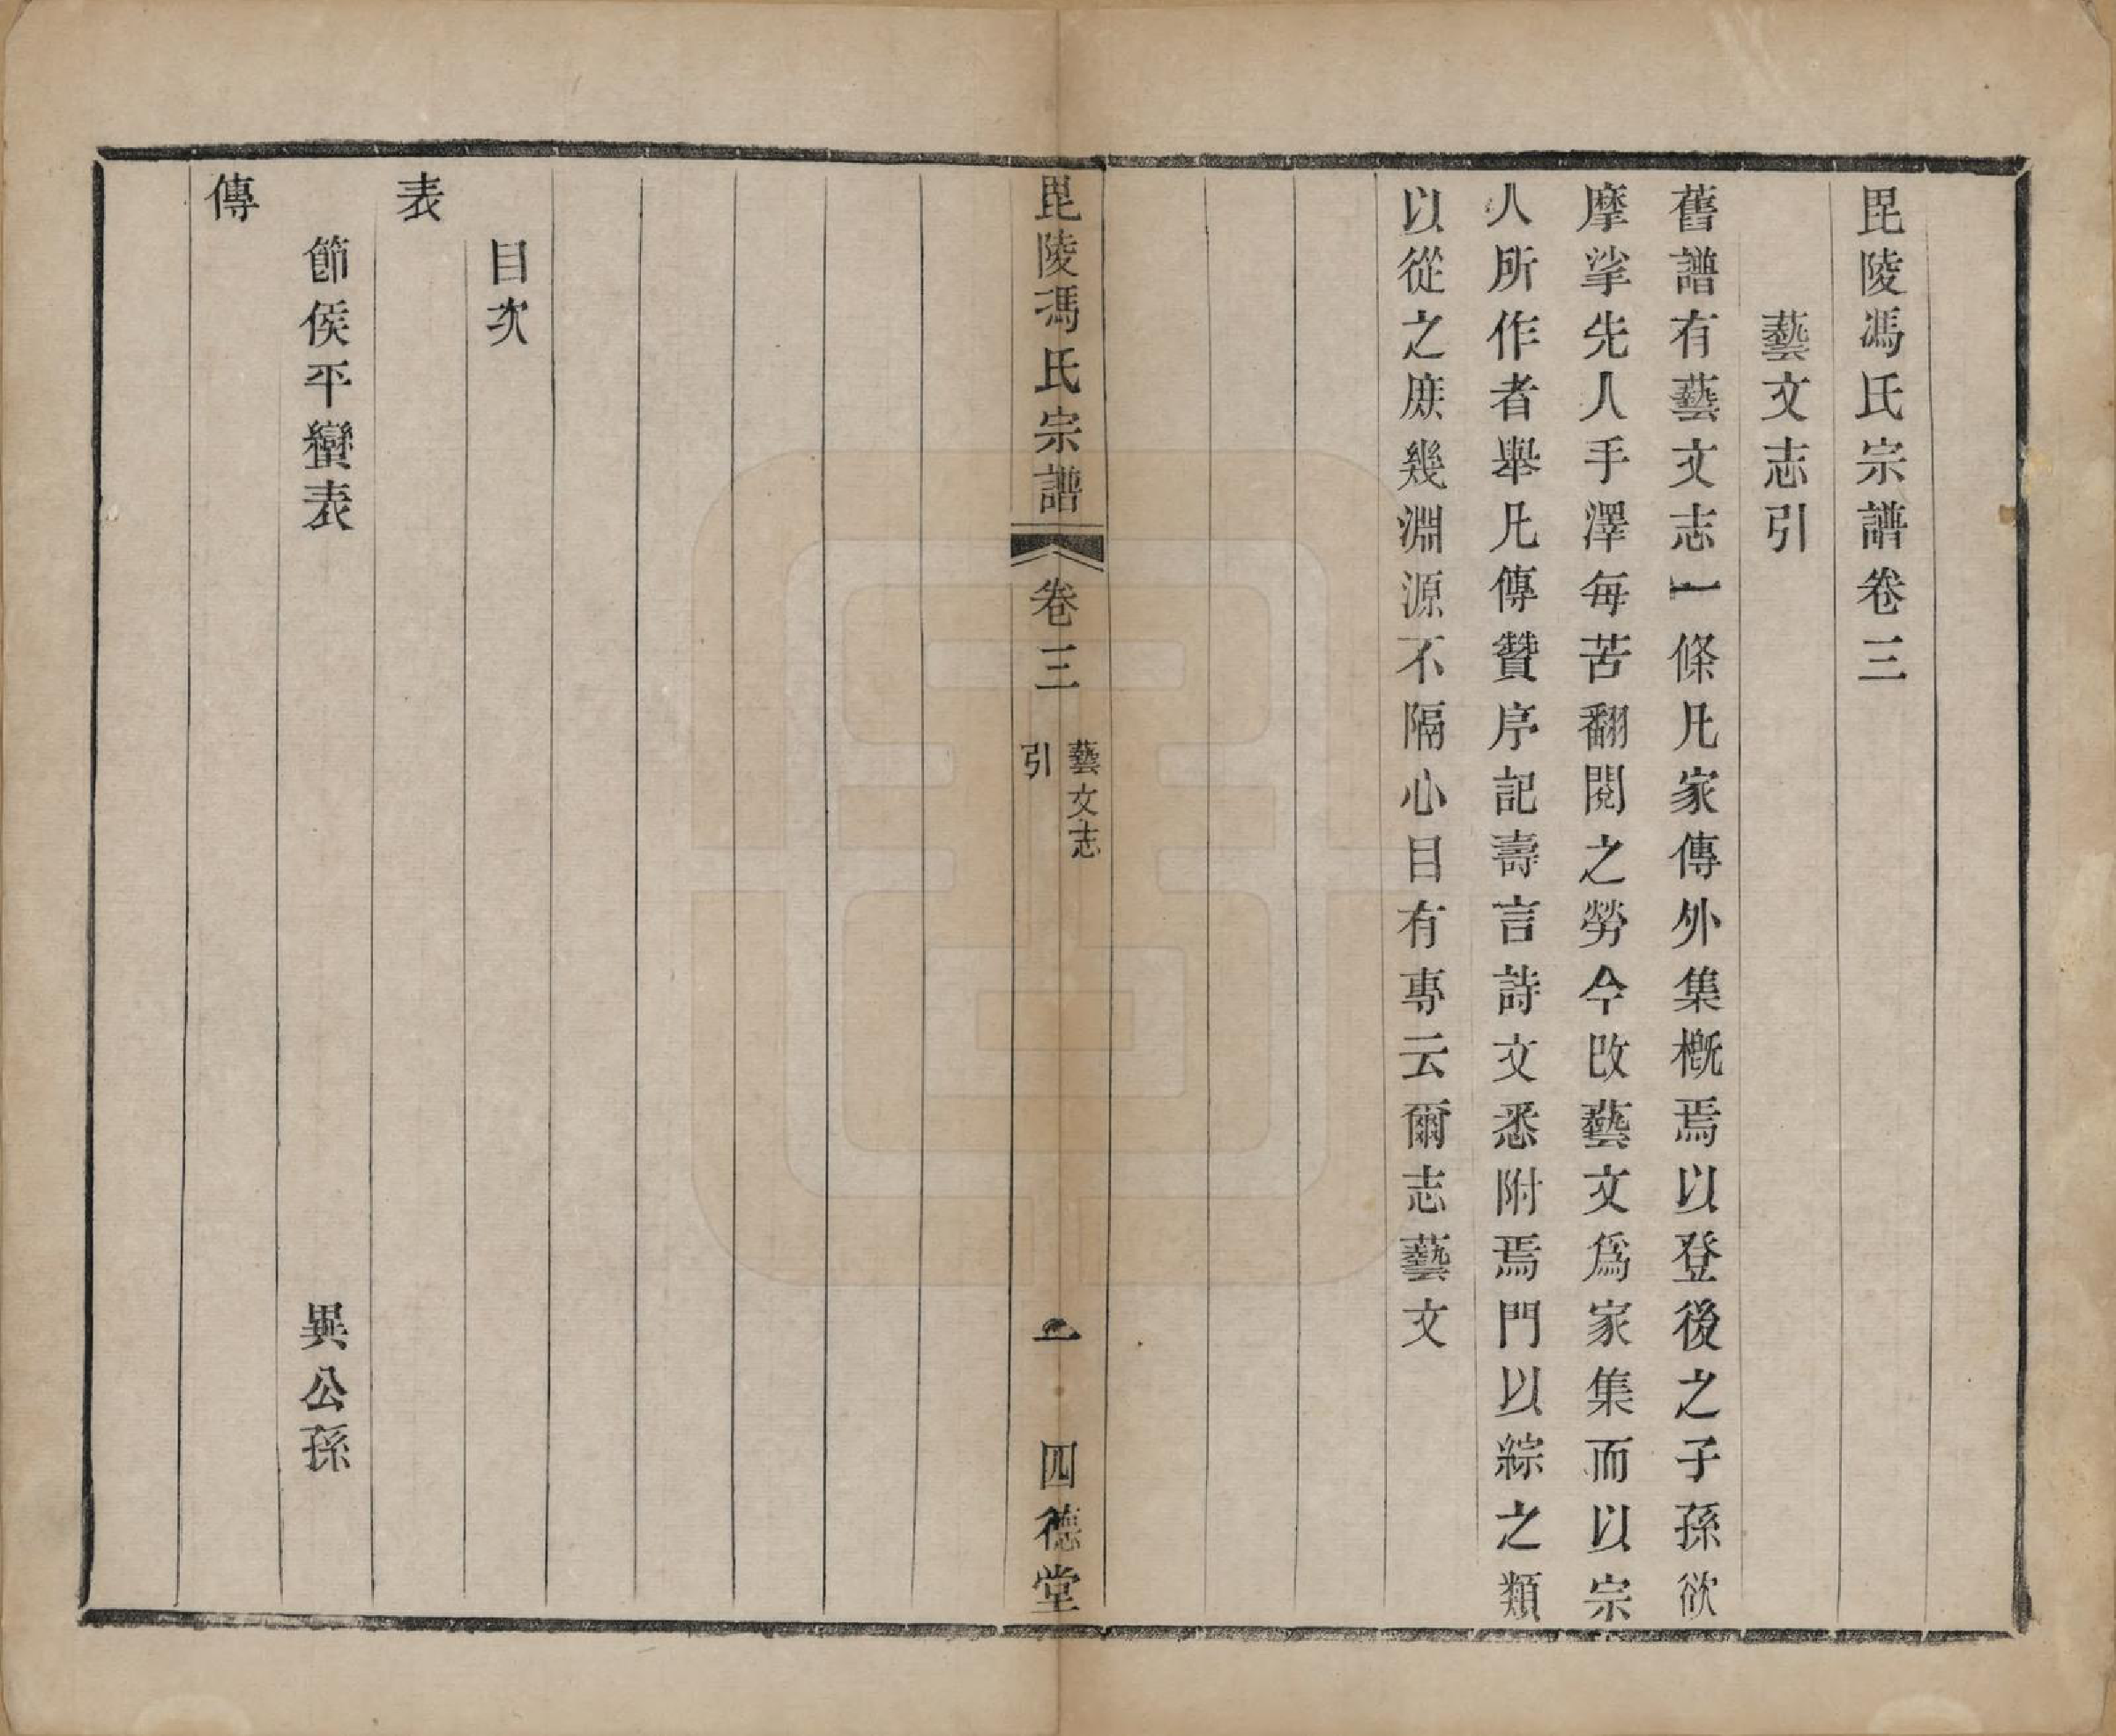 毘陵馮氏宗譜卷三
藝文志引
舊譜有藝文志一條凡家傳外集概焉以登後之子孫欲
摩挲先人手澤每苦翻閱之勞今改藝文爲家集而以宗
人所作者舉凡傳贊序記壽言詩文悉附焉門以綜之類
以從之庶幾淵源不隔心目有專云爾志藝文
毘陵馮氏宗譜
卷三
藝文志
引
一
四德堂
目次
表
節侯平蠻表
異公孫
傳